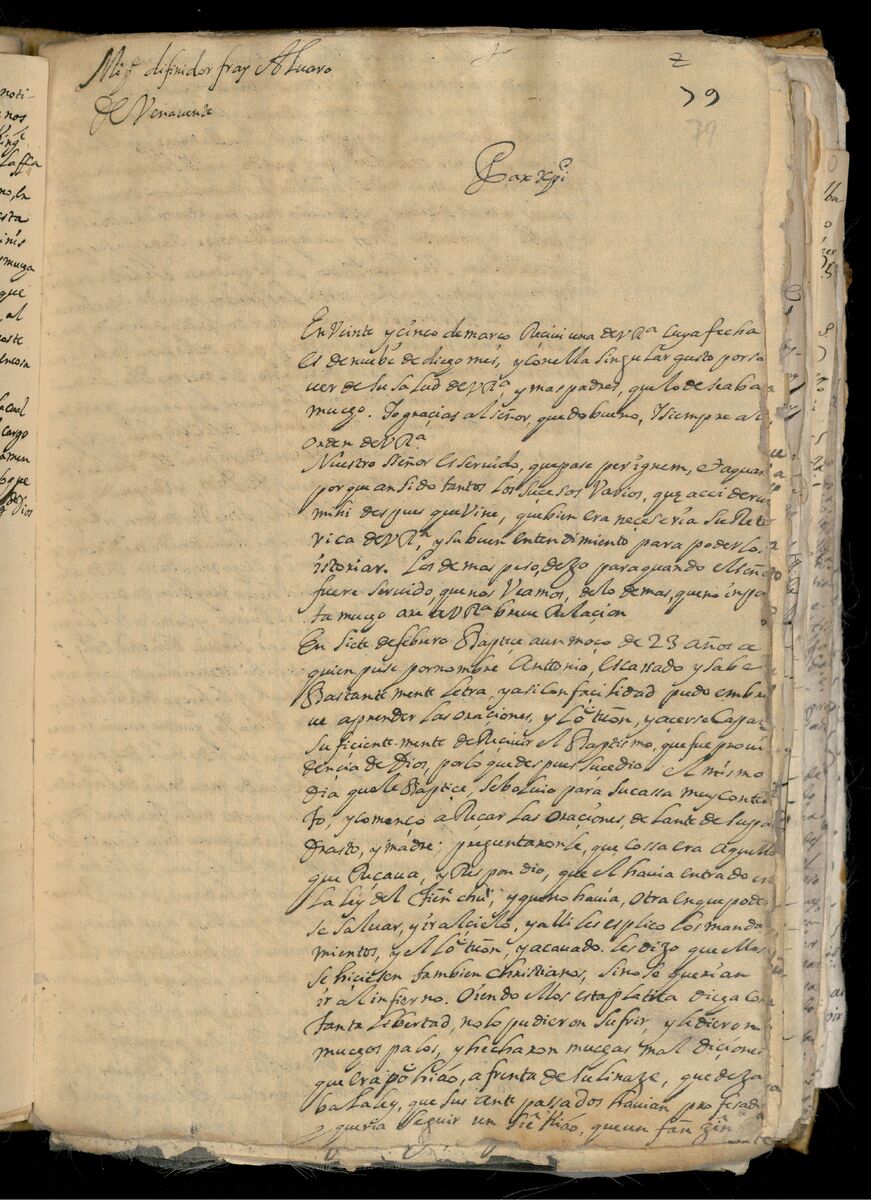 Mi Pe difinidor fray Aluaro
de Venauente
2
79
79
Pax Xpi
En Veinte y cinco de março Reciui una de V Ra cuya fecha
es de nueve de dicgo mes, y con ella singular gusto por sa
uer de su salud de V Ra y mas padres, que lo deseaba
mucgo. Yo gracias al señor, quedo bueno, Y siempre al
orden de V Ra
Nuestro Señor es seruido, que pase per ignem, et aquam
por que an sido tantos los sucesos Varios, que acciderunt
mihi despues que Vine, que bien era neceseria su Reto
rica de V Ra y su buen entendimiento para poder los
istoriar. Los de mas peso, dezo para quando el Señor
fuere seruido, que nos Veamos, de lo demas, que no inpor
ta mucgo are a V Ra breue Relaçion
En Siete de febrero Baptiçe a un moço de 23 años a
quien puse por nombre Anttonio, es cassado y sabe
Bastantemente letra, y asi con facilidad pudo en bre
ue aprender las oraciones, y acerse Capaz
suficiente-mente de Reciuir el Baptismo, que fue proui
dencia de Dios, por lo que despues sucedio. el mismo
dia que le Baptiçe, se boluio para su cassa muy conten
to, y començo a Reçar las oraciones, de lante de su pa
drasto, y madre: preguntaronle, que cossa era aquello
que Reçaua, y Respondio, que el hauia entrado en
la ley del Tien chu, y que no hauia, otra en que poder
se saluar, y ir al cielo, y alli les esplico los manda
mientos, y el y acauado. les dizo que ellos
se hiciesen tambien christianos, sino se querian
ir al infierno. Oiendo ellos esta platica dicga con
tanta libertad, no lo pudieron sufrir, y le dieron
mucgos palos, y hecharon mucgas mal diçiones
que era po hiáo, afrenta de su linaze, que deza
ba la ley, que sus ante passados hauian profesado
y queria seguir un Sie Kiáo, que un